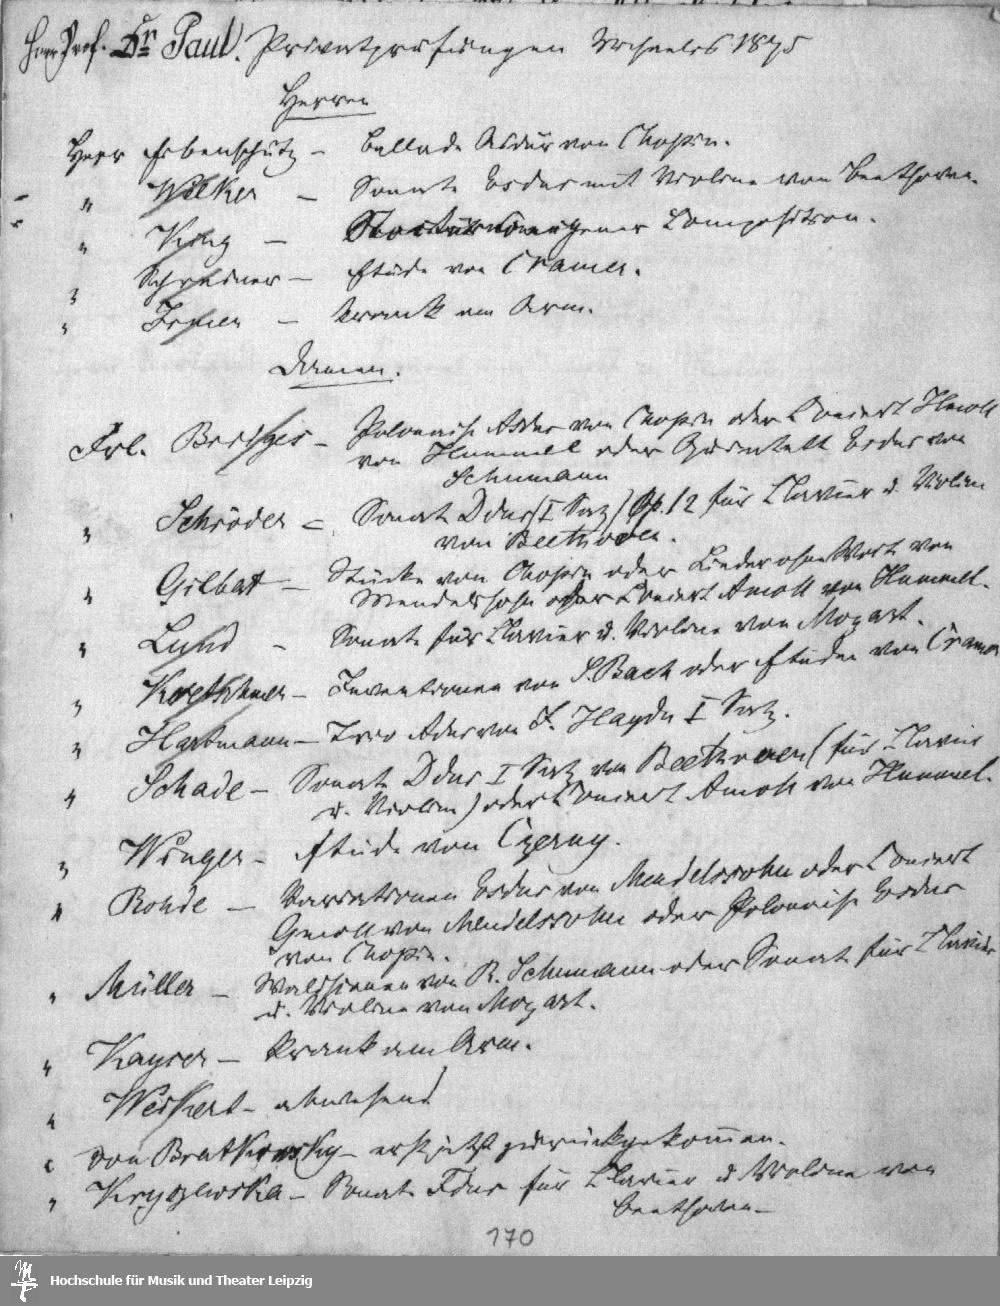 Herr Prof. Dr Paul. Privatprüfungen Michaelis 1875
Herren
Herr Eibenschütz – Ballade Asdur von Chopin.
" Wilker – Sonate Esdur mit Violine von Beethoven.
" King – eigener Composition.
" Schreiner – Etüde von Cramer.
" – krank am Arm.
Damen.
Frl. Bridges – Polonaise Asdur von Chopin oder Concert Hmoll
von Hummel oder Quintett Esdur von
Schumann
" Schröder – Sonate Ddur (I Satz) Op. 12 für Clavier u. Violine
von Beethoven.
" Gilbat – Stücke von Chopin oder Lieder ohne Wort von
Mendelssohn oder Concert Amoll von Hummel.
" Lund – Sonate für Clavier u. Violine von Mozart.
" Kretschmer – Inventionen von S. Bach oder Etüden von Cramer
" Hartmann – Trio Adur von J. Haydn I Satz.
" Schade – Sonate Ddur I Satz von Beethoven (für Clavier
u. Violine) oder Concert Amoll von Hummel.
" Winger – Etüde von Czerny.
" Rohde – Variationen Esdur von Mendelssohn oder Concert
Gmoll von Mendelssohn oder Polonaise Esdur
von Chopin.
" Müller – Waldscenen von R. Schumann oder Sonate für Clavier
u. Violine von Mozart.
" Kayser – krank am Arm.
" Weikert – abwesend
" von Bratkowsky – erst jetzt zurückgekommen.
" Kryszewska – Sonate Fdur für Clavier u Violine von
Beethoven –
170
Hochschule für Musik und Theater Leipzig